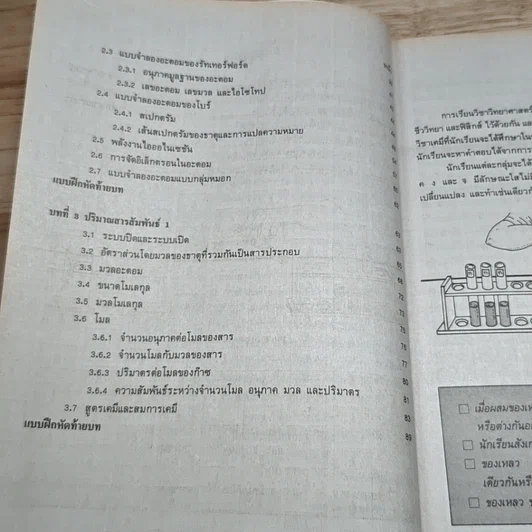 2.3 แบบจำลองอะตอมของรัทเทอร์ฟอร์ด
2.3.1 อนุภาคมูลฐานของอะตอม
2.3.2 เลขอะตอม เลขมวล และไอโซโทป
2.4 แบบจำลองอะตอมของโบร์
2.4.1 สเปกตรัม
2.4.2 เส้นสเปกตรัมของธาตุและการแปลความหมาย
2.5 พลังงานไอออไนเซชัน
2.6 การจัดอิเล็กตรอนในอะตอม
2.7 แบบจำลองอะตอมแบบกลุ่มหมอก
แบบฝึกหัดท้ายบท
บทที่ 3 ปริมาณสารสัมพันธ์ 1
3.1 ระบบปิดและระบบเปิด
3.2 อัตราส่วนโดยมวลของธาตุที่รวมกันเป็นสารประกอบ
3.3 มวลอะตอม
3.4 ขนาดโมเลกุล
3.5 มวลโมเลกุล
3.6 โมล 75
3.6.1 จำนวนอนุภาคต่อโมลของสาร
3.6.2 จำนวนโมลกับมวลของสาร
3.6.3 ปริมาตรต่อโมลของก๊าซ
3.6.4 ความสัมพันธ์ระหว่างจำนวนโมล อนุภาค มวล และปริมาตร 81
3.7 สูตรเคมีและสมการเคมี 83
แบบฝึกหัดท้ายบท 89
การเรียนวิชาวิทยาศาสตร์
ชีววิทยา และฟิสิกส์ ไว้ด้วยกัน
วิชาเคมีที่นักเรียนจะได้ศึกษาใน
นักเรียนจะหาคำตอบได้จากการ
นักเรียนแต่ละกลุ่มจะได้
ค ง และ จ มีลักษณะใสไม่
เปลี่ยนแปลง และทำเช่นเดียว
เมื่อผสมของ
หรือต่างกัน
นักเรียนสัง
ของเหลว
เดียวกัน
ของเหลว